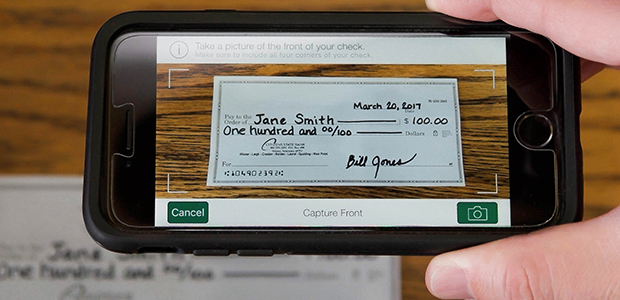 Take a picture of the front of your check.
Make sure to include all four corners of your check.
March 20, 2017
Pay to the
Order of Jane Smith $ 100.00
One hundred and 00/100 Dollars
CITIZENS STATE BANK
For Bill Jones
⑆104902392⑆
Cancel
Capture Front
Jane
One hundred and